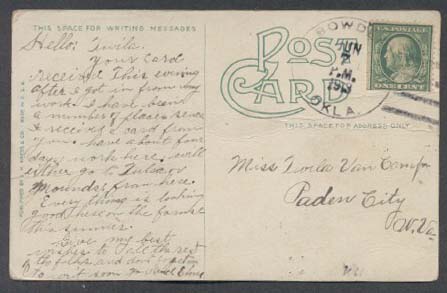 THIS SPACE FOR WRITING MESSAGES
Hello: Twila.
Your Card
received this evening
after I got in from my
work. I have been
a number of places since
I received a card from
you. have about four
days work here. will
either go to Tulsa or
Mounds from here.
Every thing is looking
good here on the farms
this summer.
Give my best
wishes to all the rest
of the folks and don't forget
to write soon
POST
CARD
JUN
2
P.M.
OKLA.
U.S. POSTAGE
ONE CENT
THIS SPACE FOR ADDRESS ONLY
Miss Twila Van Camp
Paden City
W. Va